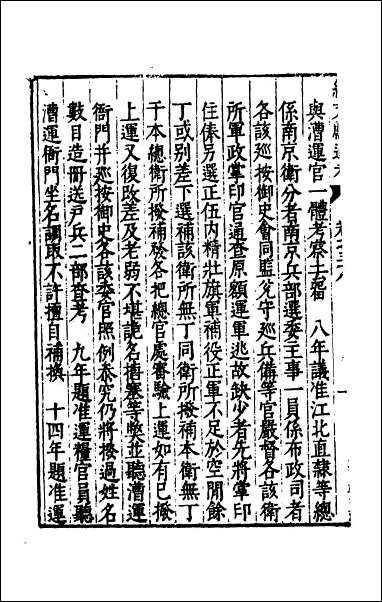 與漕運官一體考察去留　八年議准江北直隷等總
係南京衛分者南京兵部選委主事一員係布政司者
各該巡按御史會同監兌守巡兵備等官嚴督各該衛
所軍政掌印官通查原額運軍逃故缺少者先將掌印
住俸另選正伍内精壯旗軍補役正軍不足於空閒餘
丁或别差下選補該衛所無丁同衛所撥補本衛無丁
于本總衛所撥補發各把總官處審驗上運如有已撥
上運又復改差及老弱不堪詭名搪塞等弊並聽漕運
衙門并巡按御史各該委官照例叅究仍將撥過姓名
數目造冊送戸兵二部查考　九年題准運糧官員聽
漕運衙門坐名調取不許擅自補換　十四年題准運